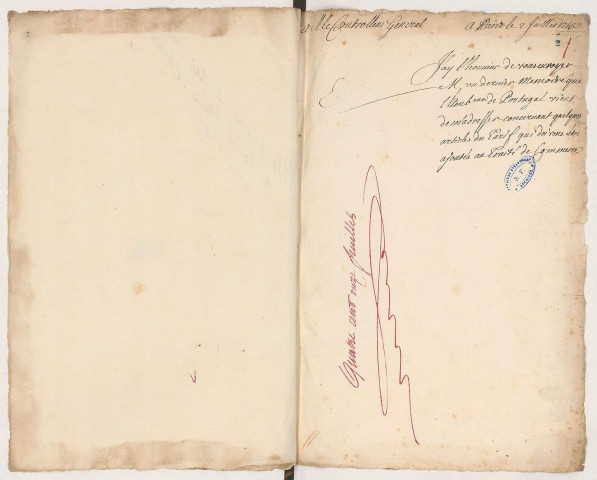 a Mr le Controlleur General
a Paris le 2 Juillet
J'ay l'honneur de vous envoyer
M, un dernier Memoire que
l'Amb.eur de Portugal vient
de m'adresser concernant quelques
articles du Tarif qui doivent etre
ajoutés au Traité de Commerce
Quatre cent onze feuilles